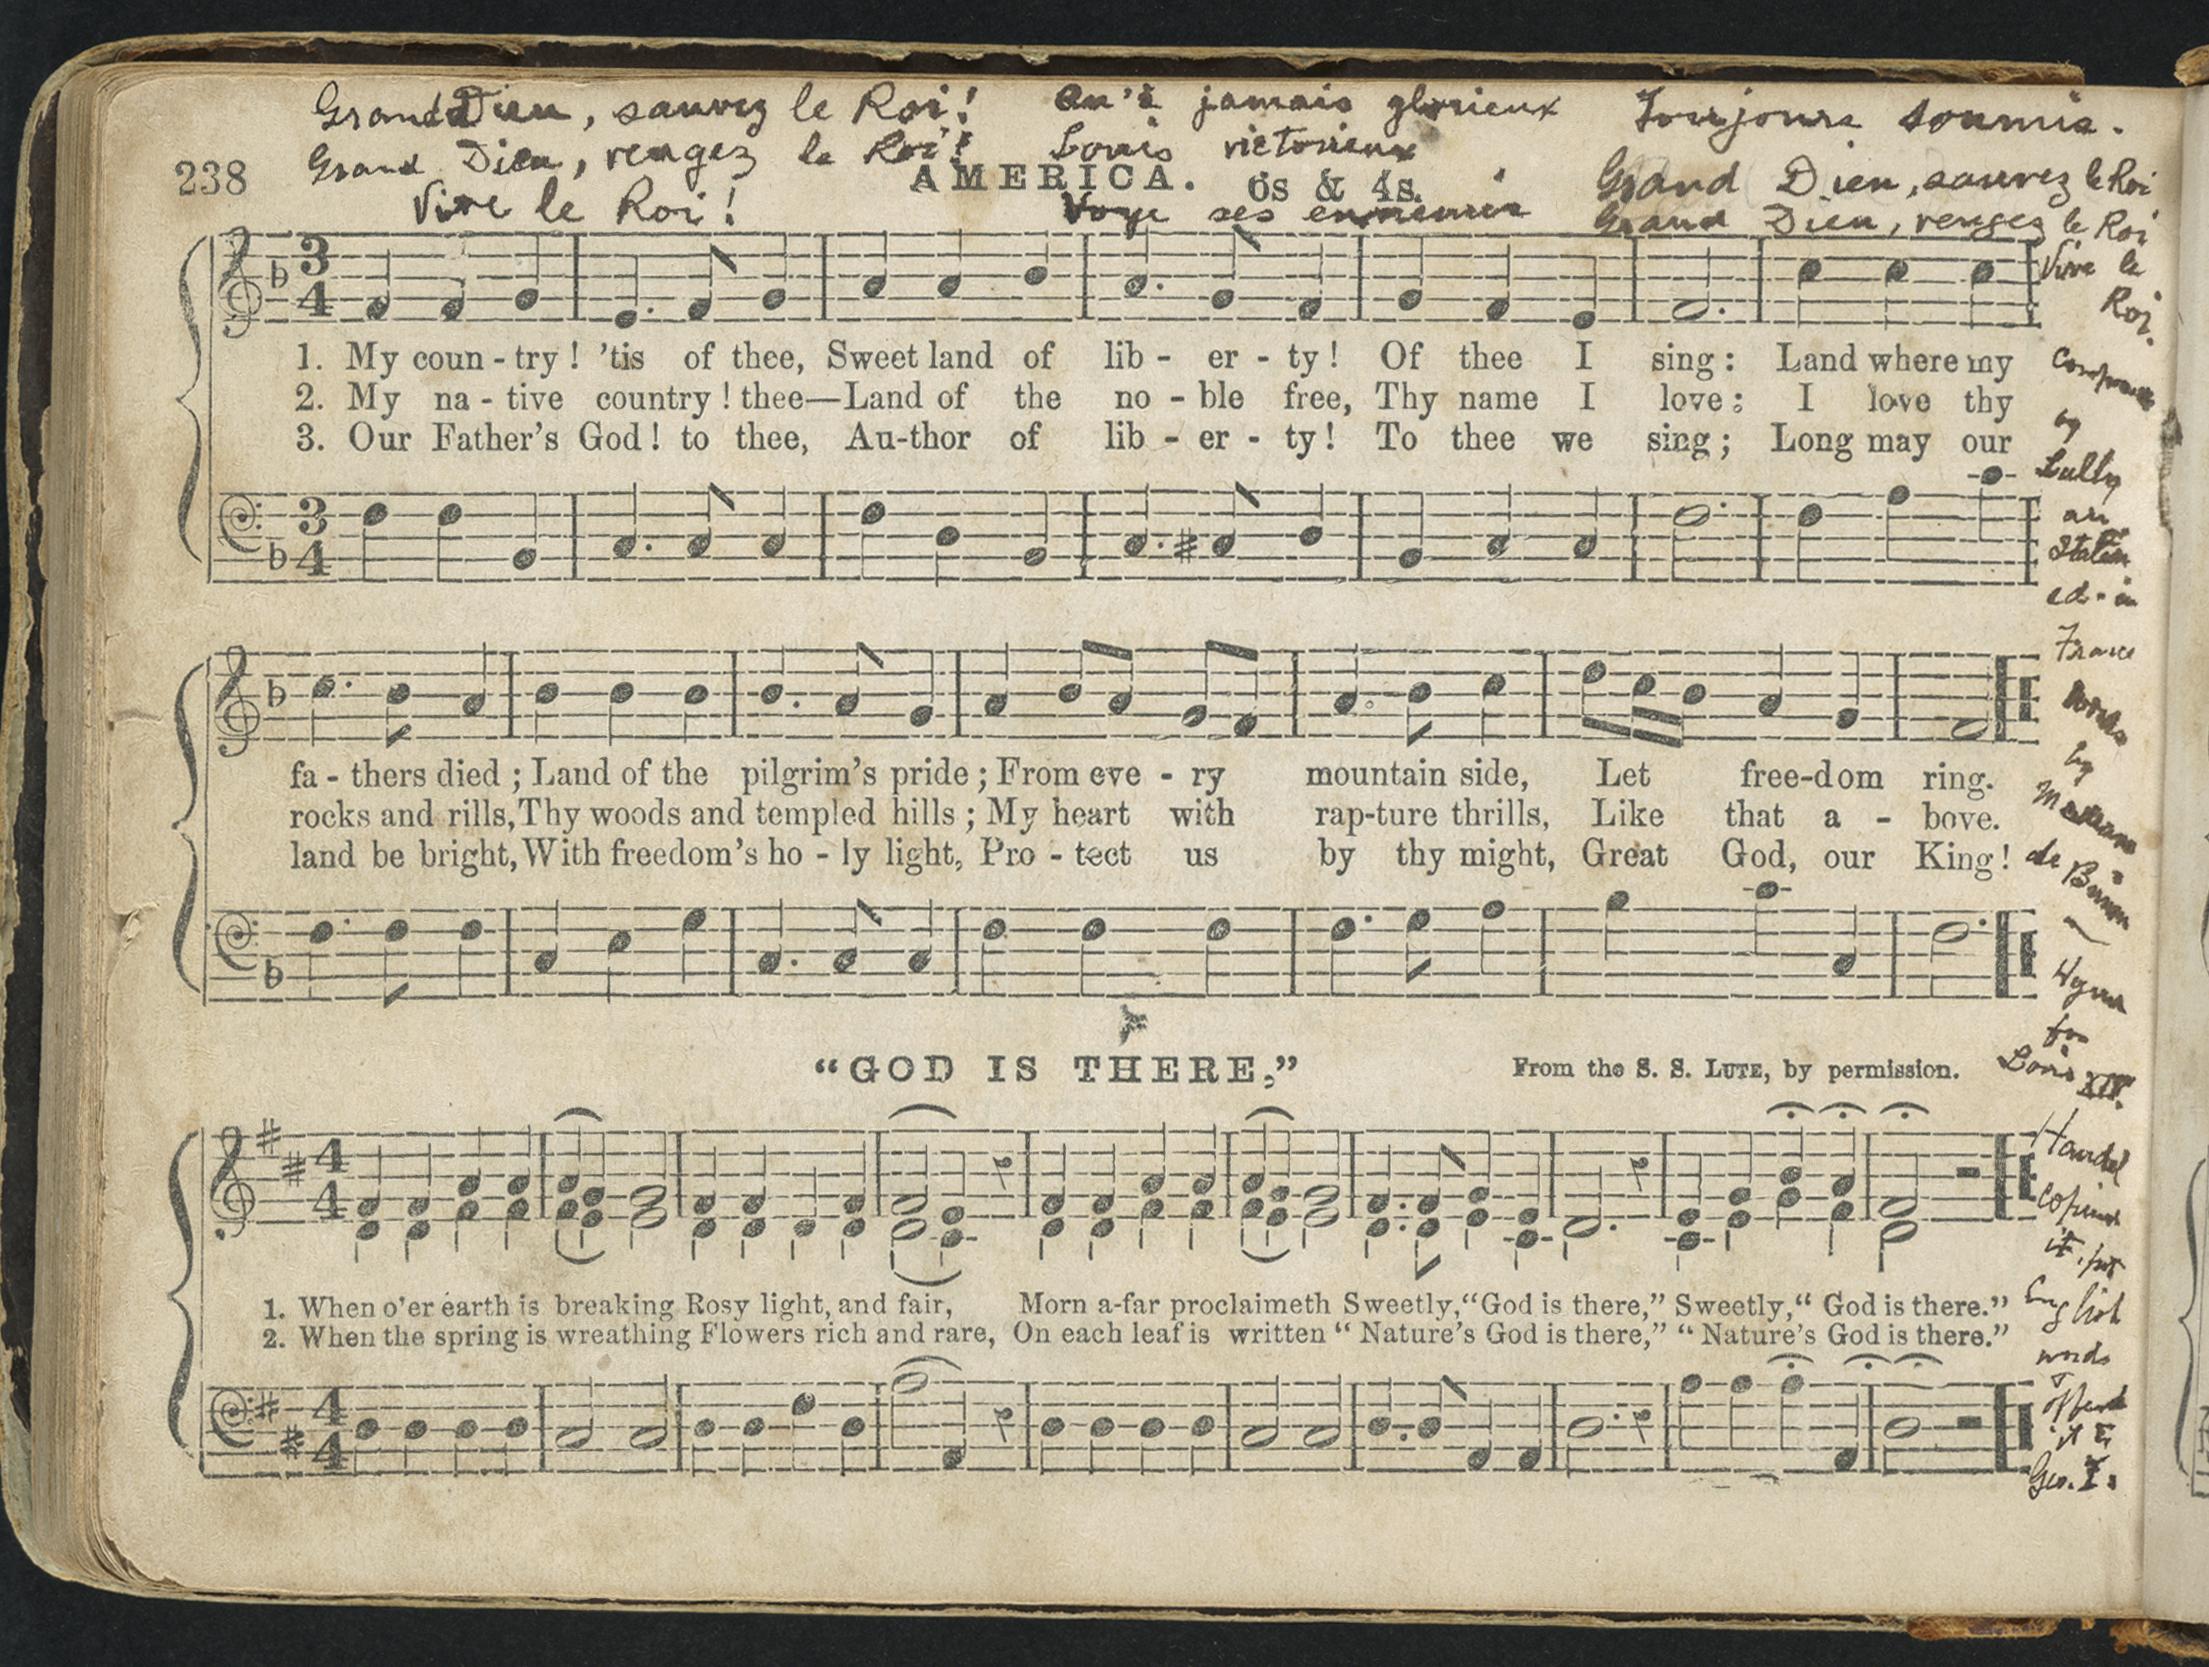 Grand Dieu, sauvez le Roi! Qu'à jamais glorieux Toujours soumis.
Grand Dieu, vengez le Roi! Louis victorieux
238 AMERICA. 6s & 4s.
Grand Dieu, sauvez le Roi
Vive le Roi! Voye ses ennemis
Grand Dieu, vengez le Roi
Vive le
Roi.
3
4
1. My coun - try! 'tis of thee, Sweet land of lib - er - ty! Of thee I sing: Land where my
2. My na - tive country! thee—Land of the no - ble free, Thy name I love: I love thy
3. Our Father's God! to thee, Au-thor of lib - er - ty! To thee we sing; Long may our
3
4
by
Lully
an
Italian
France
words
by
Madame
de
Hymn
for
Louis XIV.
fa - thers died; Land of the pilgrim's pride; From eve - ry mountain side, Let free-dom ring.
rocks and rills, Thy woods and templed hills; My heart with rap-ture thrills, Like that a - bove.
land be bright, With freedom's ho - ly light, Pro - tect us by thy might, Great God, our King!
"GOD IS THERE." From the S. S. LUTE, by permission.
4
4
1. When o'er earth is breaking Rosy light, and fair, Morn a-far proclaimeth Sweetly, "God is there," Sweetly, "God is there."
2. When the spring is wreathing Flowers rich and rare, On each leaf is written "Nature's God is there," "Nature's God is there."
4
4
Handel
copied
it, put
English
words
offered
it to
Geo. I.